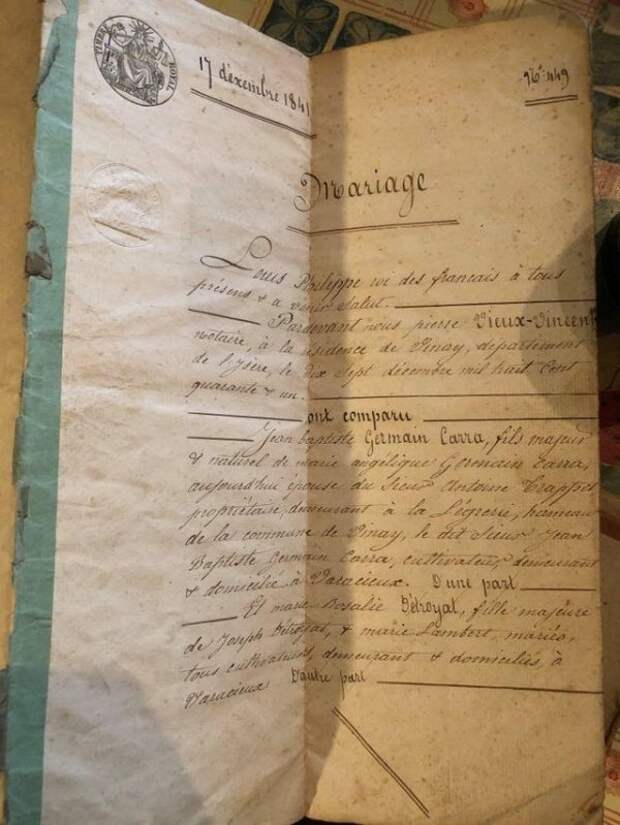 TIMBRE ROYAL
17 décembre 1841
No. 449
Mariage
Louis Philippe roi des français à tous
présens & a venir Salut.
Pardevant nous pierre Vieux-Vincent
notaire, à la résidence de Vinay, département
de l'Isère, le dix Sept décembre mil huit Cent
quarante & un.
ont comparu
Jean baptiste Germain Carra, fils majeur
& naturel de marie angélique Germain Carra,
aujourd'hui épouse du Sieur Antoine Trappet
propriétaire, demeurant à la hameau
de la commune de Vinay, le dit Sieur Jean
Baptiste Germain Carra, cultivateur, demeurant
& domicilié à Varacieux. D'une part
Et marie Rosalie Détroyat, fille majeure
de Joseph Détroyat, & marie Lambert, mariés,
tous cultivateurs, demeurant & domiciliés, à
Varacieux D'autre part